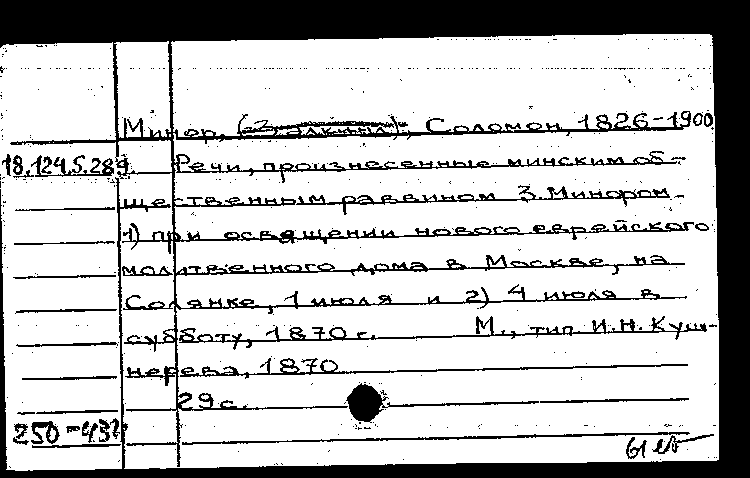 Минор, Соломон, 1826-1900
18.124.5.289 Речи, произнесенные минским об-
щественным раввином З. Минором
1) при освящении нового еврейского
молитвенного дома в Москве, на
Солянке, 1 июля и 2) 4 июля в
субботу, 1870 г. М., тип. И.Н. Куш-
нерева, 1870
29 с.